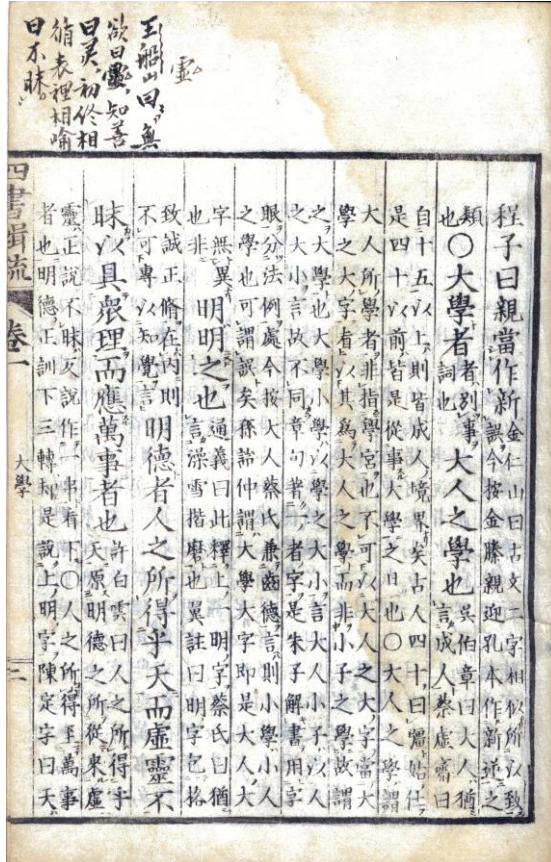 虛
王船山曰無
欲曰靈知善
曰灵初終相
循表裡相喻
曰不昧
程子曰親當作新
金仁山曰古文二字相似所以致
誤今按金縢親迎孔本作新迎之
類
也
○大學者
者別事
詞也
大人之學也
吳伯章曰大人猶
言成人蔡虛齋曰
自十五以上則皆成人境界矣古人四十曰彊始仕
是四十以前皆是從事大學之日也○大人之學謂
大人所學者非指學宮也不可以大人之大字當大
學之大字者以其為大人之學而非小子之學故謂
之大學也大學小學以學之大小言大人小子以人
之大小言故不同章句著一者字是朱子解書用字
眼分法例處今按大人蔡氏兼齒德言則小學小人
之學也可謂誤矣孫詒仲謂大學大字即是大人大
字無異
也非
明明之也
通義曰此釋上一明字蔡氏曰猶
言澡雪揩磨也翼註曰明字包格
致誠正脩在內則
不可專以知覺言
明德者人之所得乎天而虛靈不
昧以具衆理而應萬事者也
許白雲曰人之所得乎
天原明德之所從來虛
靈正說不昧又說作一串看下○人之所得至萬事
者也明德正訓下三轉却是說上明字陳定字曰天
四書輯疏 卷一 大學 二